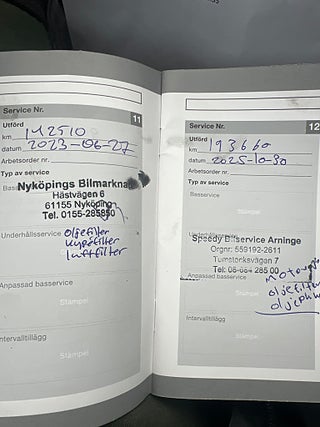 Service Nr.
11
Utförd
km 142510
datum 2023-06-27
Arbetsorder nr.
Typ av service
Nyköpings Bilmarknad
Hästvägen 6
61155 Nyköping
Tel. 0155-285850
Underhållsservice
oljefilter
kupéfilter
luftfilter
Stämpel
Anpassad basservice
Stämpel
Intervalltillägg
Stämpel
Service Nr.
12
Utförd
km 193660
datum 2025-10-30
Arbetsorder nr.
Typ av service
Basservice
Underhållsservice
Speedy Bilservice Arninge
Orgnr: 559192-2611
Tumstocksvägen 7
Tel: 08-684 285 00
Anpassad basservice
oljefilter
Stämpel
Intervalltillägg
Stämpel